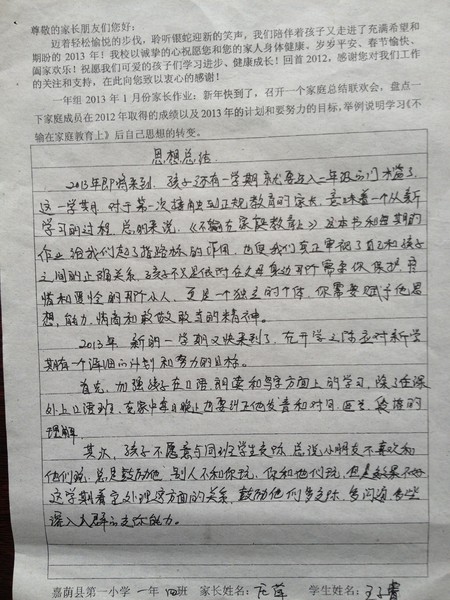 尊敬的家长朋友们您好：
迈着轻松愉悦的步伐，聆听银蛇迎新的笑声，我们陪伴着孩子又走进了充满希望和
期盼的 2013 年！我校以诚挚的心祝愿您和您的家人身体健康、岁岁平安、春节愉快、
阖家欢乐！祝愿我们可爱的孩子们学习进步、健康成长！回首 2012，感谢您对我们工作
的关注和支持，在此向您致以衷心的感谢！
一年组 2013 年 1 月份家长作业：新年快到了，召开一个家庭总结联欢会，盘点一
下家庭成员在 2012 年取得的成绩以及 2013 年的计划和要努力的目标，举例说明学习《不
输在家庭教育上》后自己思想的转变。
思想总结
2013年即将来到，孩子还有一学期就要迈入二年级的门槛了，
这一学期，对于第一次接触到正规教育的家长，意味着一个从新
学习的过程，总的来说，《不输在家庭教育上》这本书和每期的
作业给我们起了指路标的作用，也使我们真正审视了自己和孩子
之间的正确关系，孩子不只是依附在父母身边那个需要你保护、
的那个小人，更是一个独立的个体，你需要赋予他思
想、能力、情商和敢做敢当的精神。
2013年，新的一学期又快来到了，在开学之际应对新学
期有一个详细的计划和努力的目标。
首先，加强孩子在口语、朗读和写字方面上的学习，除了在课
外上口语班，在家中每日晚上也要纠正他发音和对
理解。
其次，孩子不愿意与同班学生交际，总说小朋友不喜欢和
他们玩，总是鼓励他，别人不和你玩，你和他们玩，但是效果不好
这学期着重处理这方面的关系，鼓励他们多交际，多沟通，
深入人群的交际能力。
嘉荫县第一小学 一年 四班 家长姓名： 学生姓名：